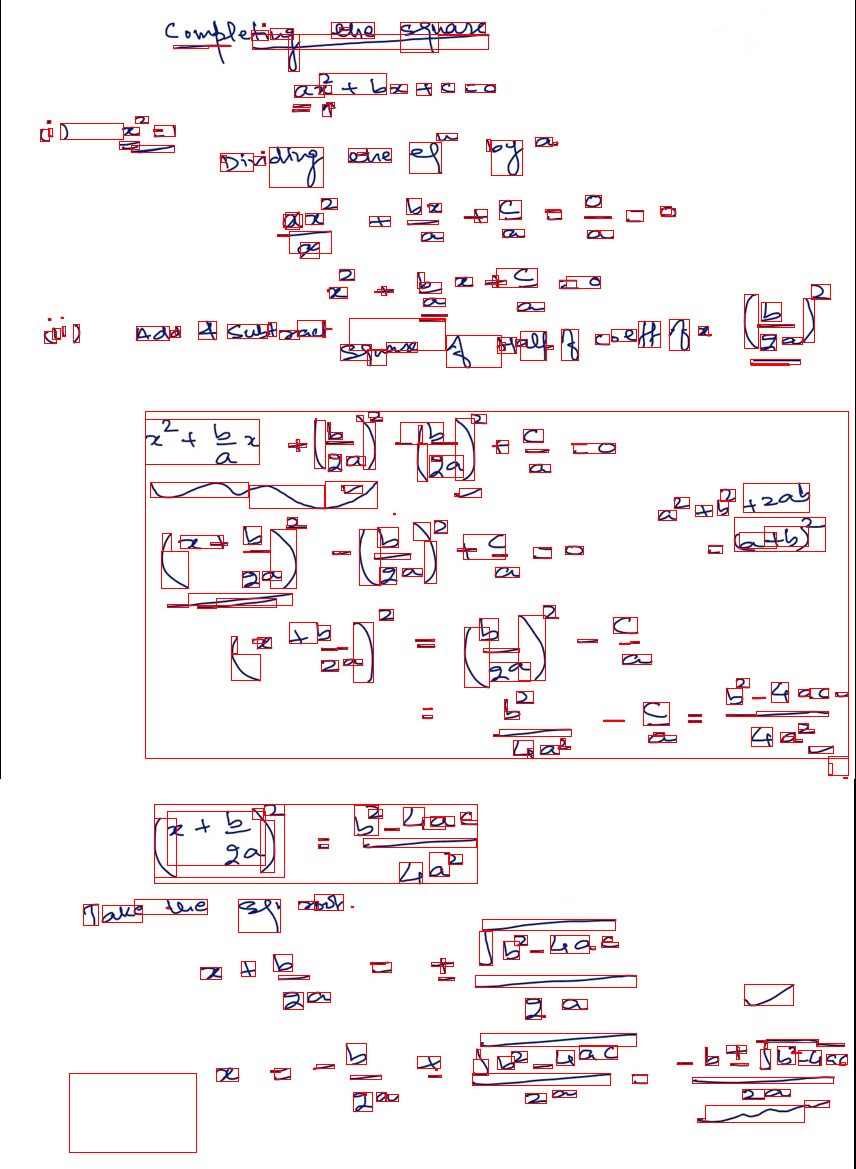 Completing the square
ax² + bx + c = 0
= 1
(i) x² = 1
Dividing the eqⁿ by a
ax²/a + bx/a + c/a = 0/a = 0
x² + b/a x + c/a = 0
(ii) Add & Subtract square of Half of coeff of x (b/2a)²
x² + b/a x + (b/2a)² - (b/2a)² + c/a = 0
a² + b² + 2ab
= (a+b)²
(x + b/2a)² - (b/2a)² + c/a = 0
(x + b/2a)² = (b/2a)² - c/a
= b²/4a² - c/a = b² - 4ac/4a²
(x + b/2a)² = b² - 4ac/4a²
Take the sq root.
x + b/2a = ± √b² - 4ac/2a
x = - b/2a ± √b² - 4ac/2a = -b ± √b² - 4ac/2a